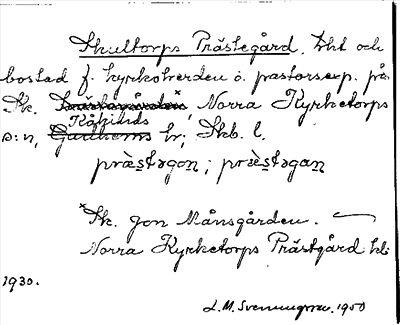 Skultorps Prästegård. Lht och
bostad f. kyrkoherden o. pastorsexp. på
Sk. Prästegården×, Norra Kyrketorps
Kåkinds
s:n, Gudhems hr; Skb. l.
præstəgon; præ̀stəgan
× Sk. Jon Månsgården.
Norra Kyrketorps Prästgård
1930.
L. M. Svenungsson. 1950